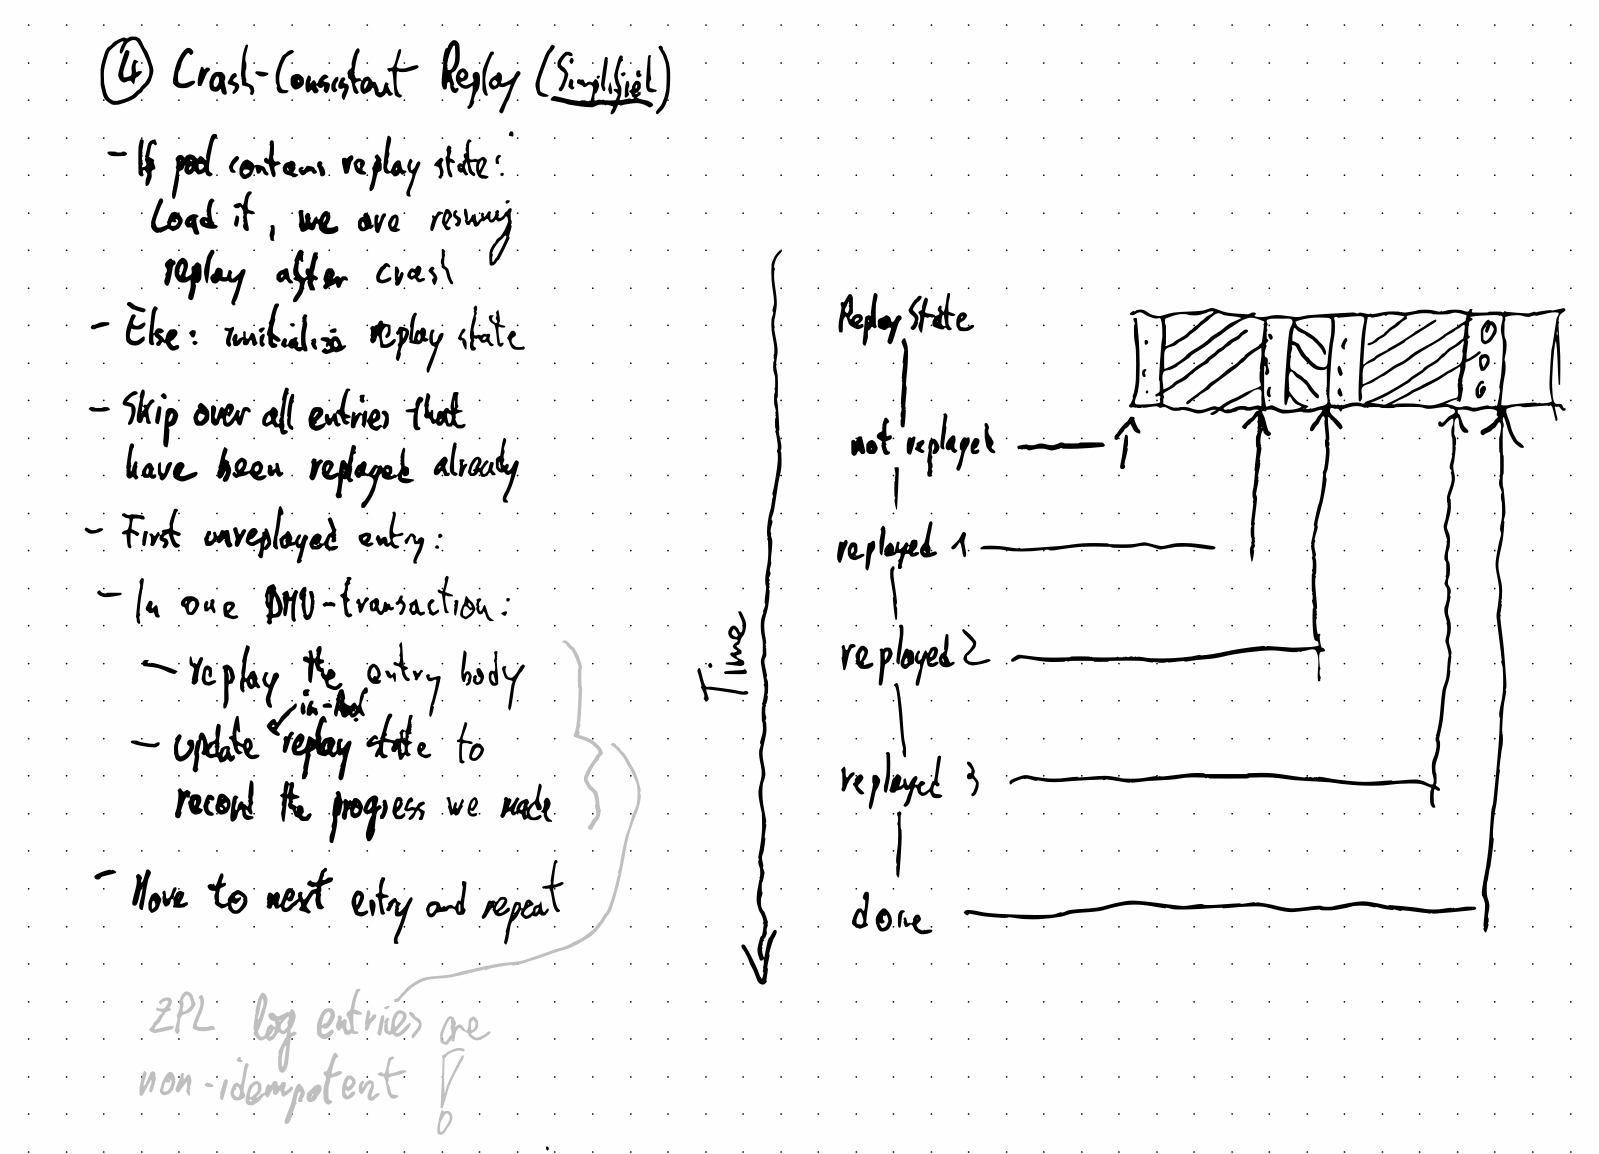 ④ Crash-Consistent Replay (Simplified)
- If pool contains replay state:
Load it, we are resuming
replay after crash
- Else: initialize replay state
- Skip over all entries that
have been replayed already
- First unreplayed entry:
- In one DMU-transaction:
- replay the entry body
in-Pool
- update replay state to
record the progress we made
- Move to next entry and repeat
ZPL log entries are
non-idempotent !
Time
Replay State
not replayed
replayed 1
replayed 2
replayed 3
done
000